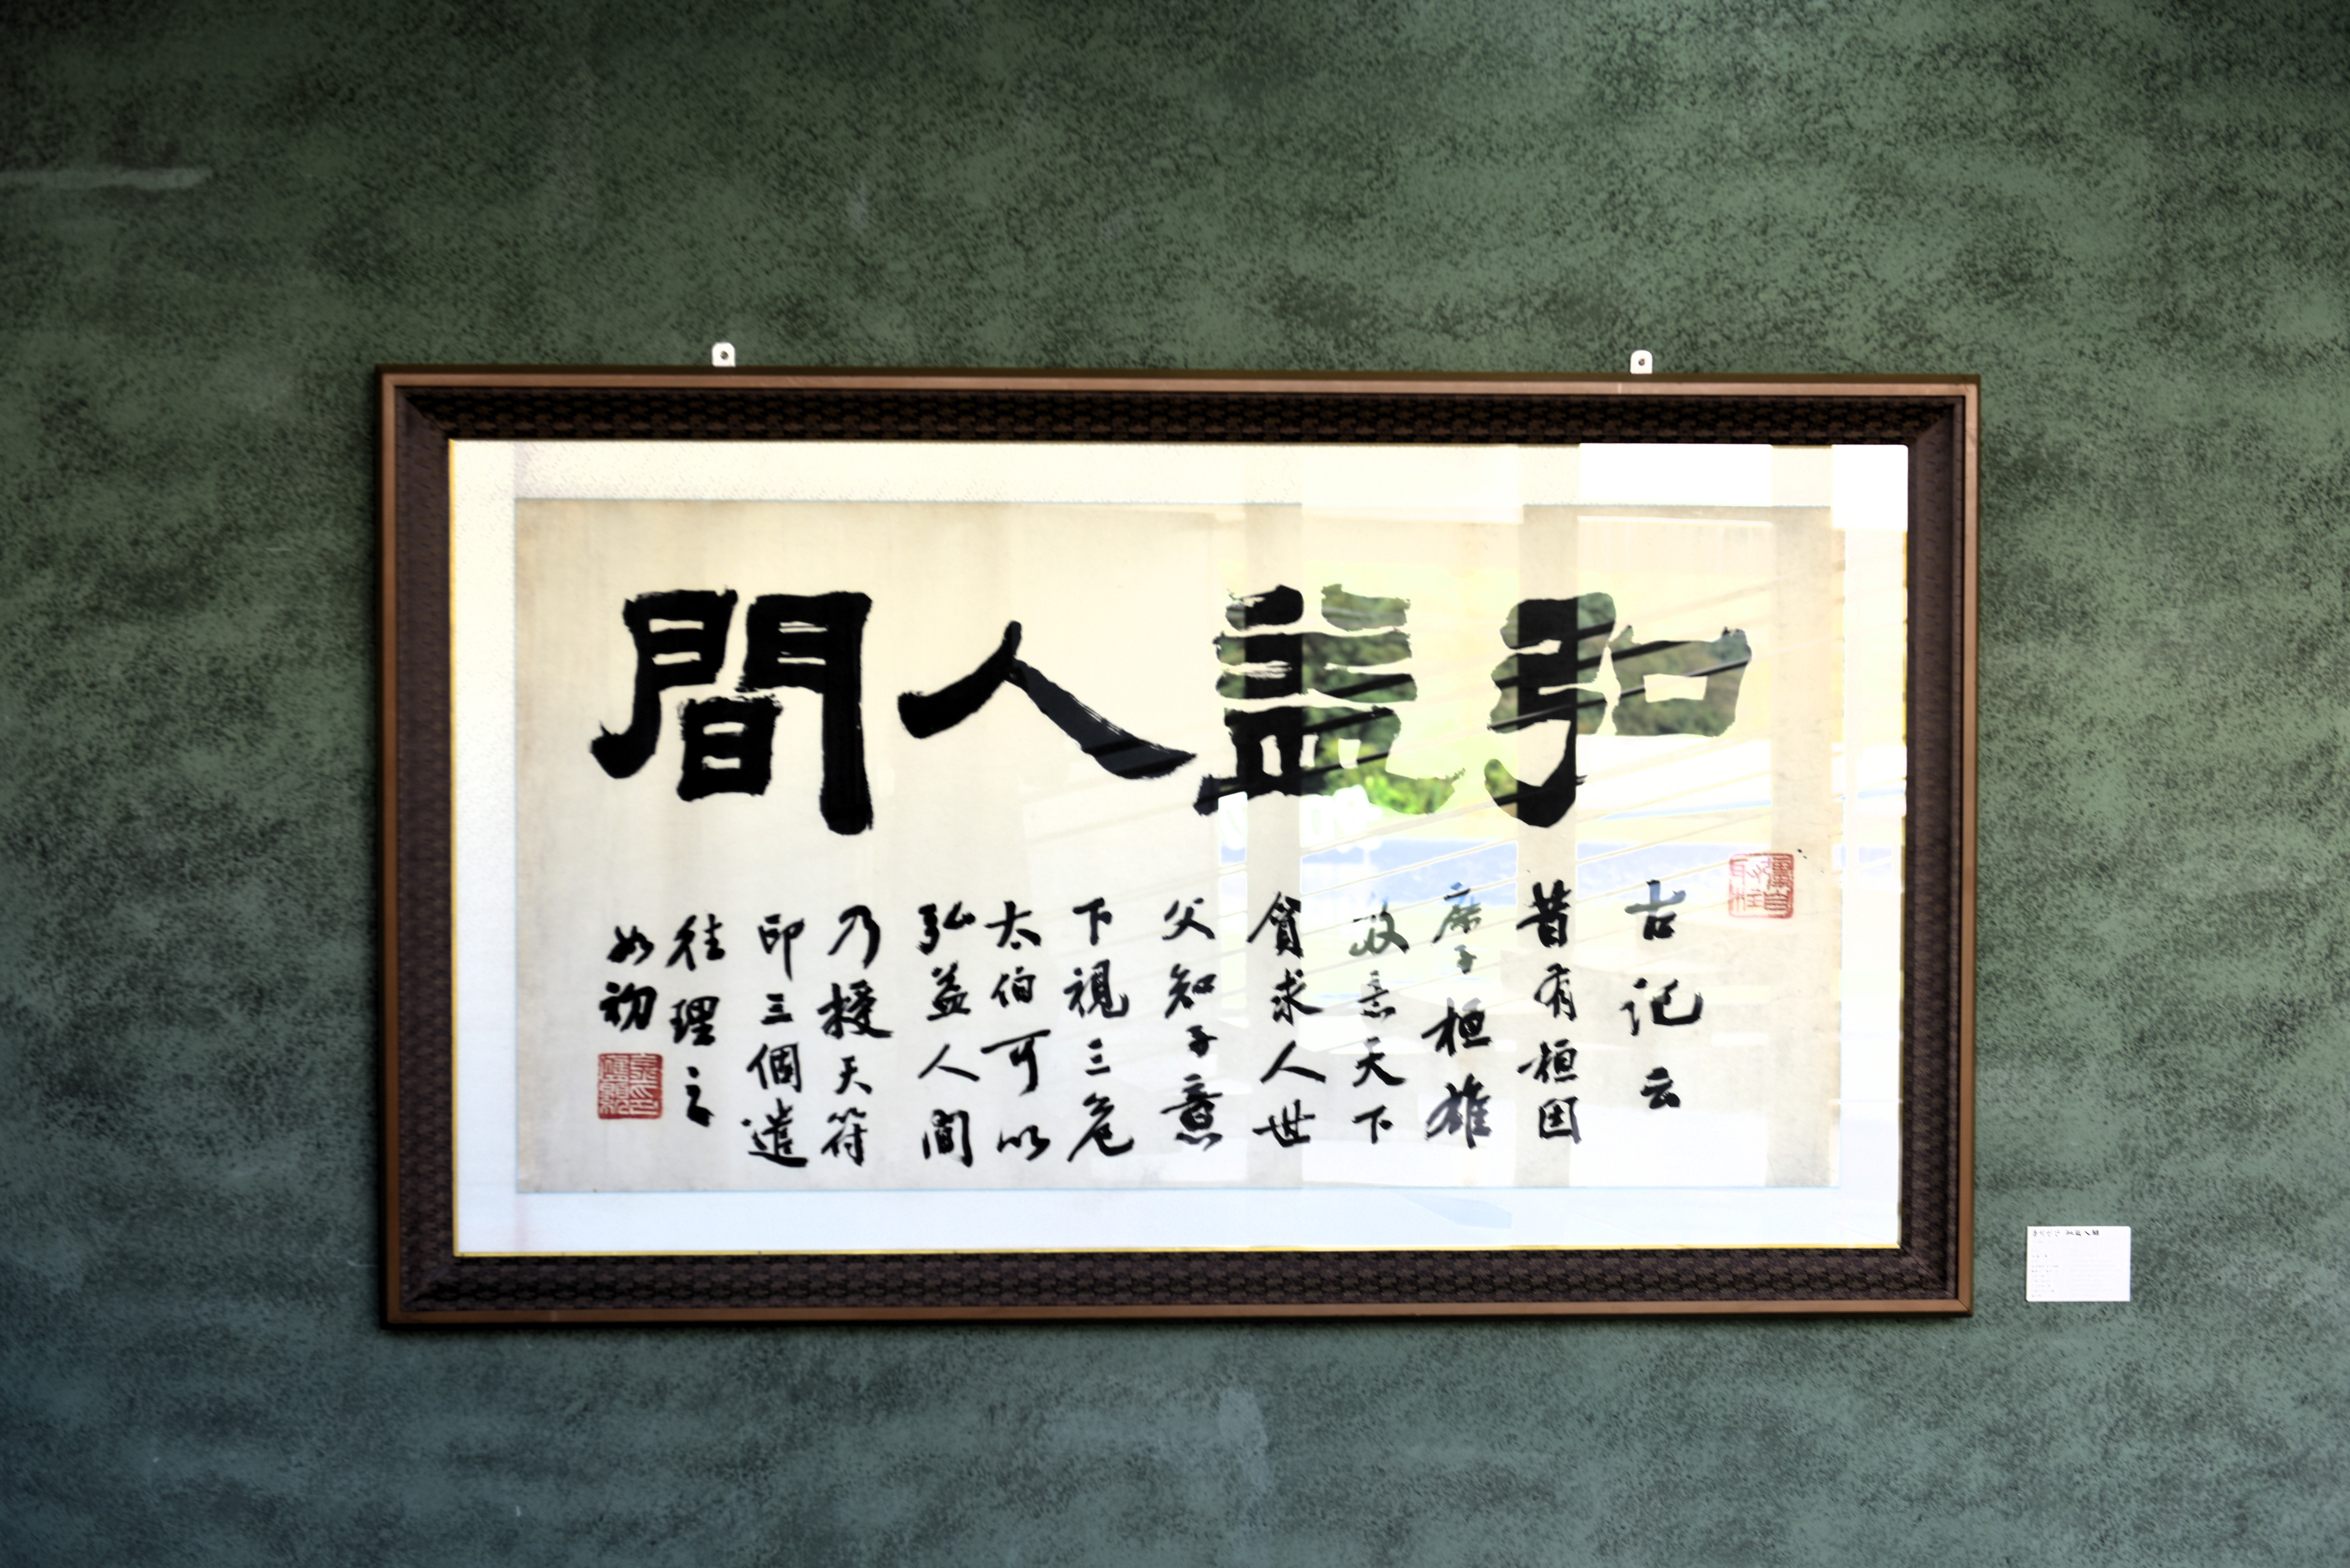 弘益人間
古記云
昔有桓因
庶子桓雄
故意天下
貧求人世
父知子意
下視三危
太伯可以
弘益人間
乃授天符
印三個遣
往理之
如初